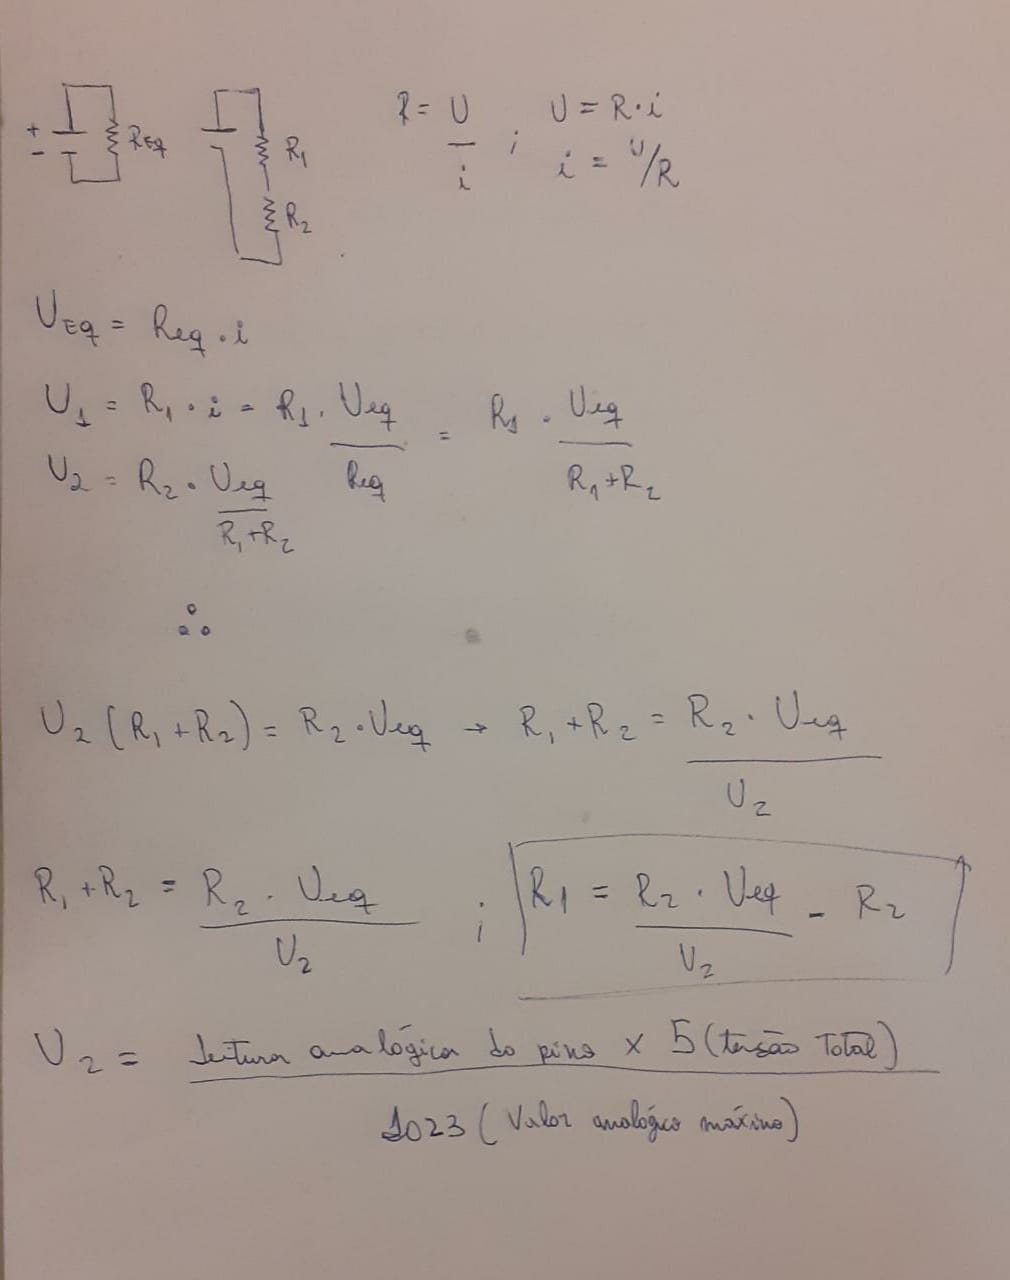 +
-
REq
R1
R2
R = U / i ; U = R·i
i = U/R
UEq = Req . i
U1 = R1 . i = R1 . Ueq / Req = R1 . Ueq / R1+R2
U2 = R2 . Ueq / R1+R2
∴
U2 (R1 + R2) = R2 . Ueq → R1 + R2 = R2 . Ueq / U2
R1 + R2 = R2 . Ueq / U2 ; R1 = R2 . Ueq / U2 - R2
U2 = Leitura analógica do pino x 5 (tensão Total)
1023 (Valor analógico máximo)